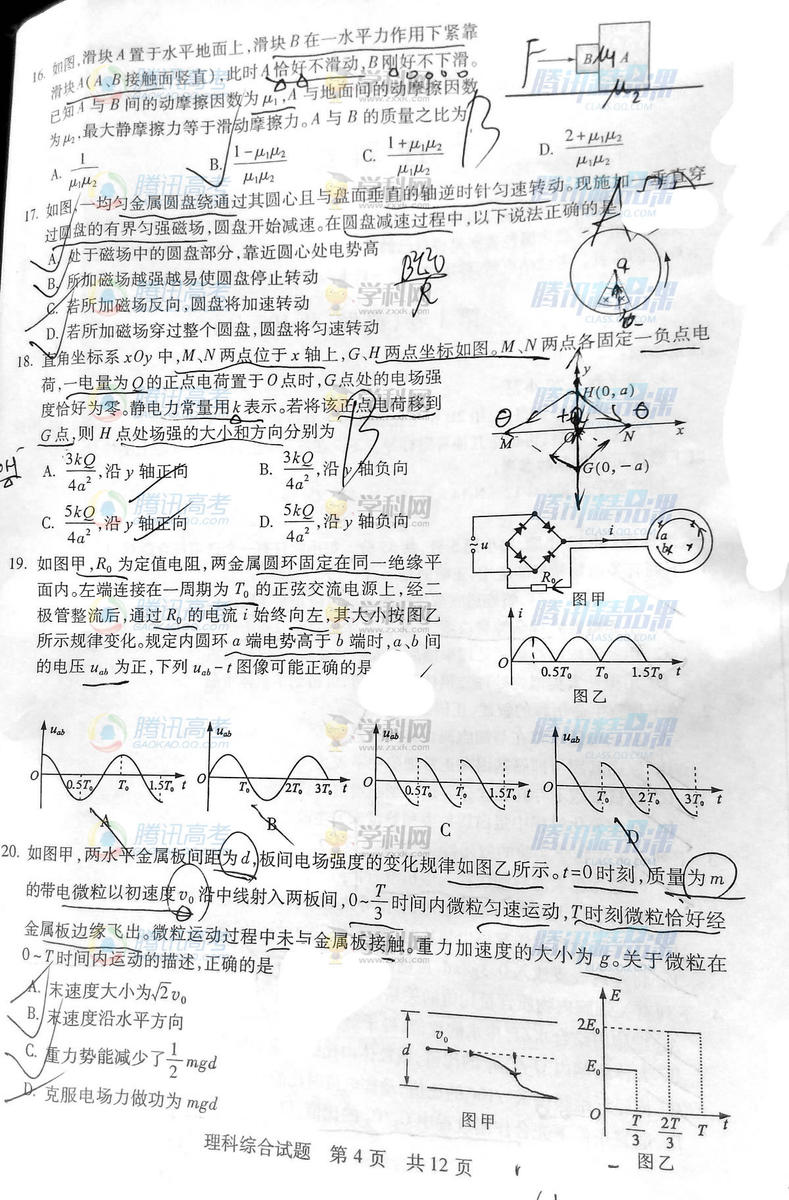 16. 如图,滑块A置于水平地面上,滑块B在一水平力作用下紧靠
滑块A(A、B接触面竖直),此时A恰好不滑动,B刚好不下滑。
已知A与B间的动摩擦因数为μ₁,A与地面间的动摩擦因数
为μ₂,最大静摩擦力等于滑动摩擦力。A与B的质量之比为
A. 1/μ₁μ₂ B. (1-μ₁μ₂)/μ₁μ₂ C. (1+μ₁μ₂)/μ₁μ₂ D. (2+μ₁μ₂)/μ₁μ₂
F B μ₁ A
μ₂
B
17. 如图,一均匀金属圆盘绕通过其圆心且与盘面垂直的轴逆时针匀速转动。现施加一垂直穿
过圆盘的有界匀强磁场,圆盘开始减速。在圆盘减速过程中,以下说法正确的是
A. 处于磁场中的圆盘部分,靠近圆心处电势高
B. 所加磁场越强越易使圆盘停止转动
C. 若所加磁场反向,圆盘将加速转动
D. 若所加磁场穿过整个圆盘,圆盘将匀速转动
B²L²υ/R
a
b
18. 直角坐标系xOy中,M、N两点位于x轴上,G、H两点坐标如图。M、N两点各固定一负点电
荷,一电量为Q的正点电荷置于O点时,G点处的电场强
度恰好为零。静电力常量用k表示。若将该正点电荷移到
G点,则H点处场强的大小和方向分别为
A. 3kQ/4a²,沿y轴正向 B. 3kQ/4a²,沿y轴负向
C. 5kQ/4a²,沿y轴正向 D. 5kQ/4a²,沿y轴负向
B
y
H(0,a)
M O N x
G(0,-a)
19. 如图甲,R₀为定值电阻,两金属圆环固定在同一绝缘平
面内。左端连接在一周期为T₀的正弦交流电源上,经二
极管整流后,通过R₀的电流i始终向左,其大小按图乙
所示规律变化。规定内圆环a端电势高于b端时,a、b间
的电压uab为正,下列uab-t图像可能正确的是
u i a
b
R₀
图甲
i
O 0.5T₀ T₀ 1.5T₀ t
图乙
uab uab uab uab
O 0.5T₀ T₀ 1.5T₀ t O T₀ 2T₀ 3T₀ t O 0.5T₀ T₀ 1.5T₀ t O T₀ 2T₀ 3T₀ t
A B C D
20. 如图甲,两水平金属板间距为d,板间电场强度的变化规律如图乙所示。t=0时刻,质量为m
的带电微粒以初速度v₀沿中线射入两板间,0~T/3时间内微粒匀速运动,T时刻微粒恰好经
金属板边缘飞出。微粒运动过程中未与金属板接触。重力加速度的大小为g。关于微粒在
0~T时间内运动的描述,正确的是
A. 末速度大小为√2v₀
B. 末速度沿水平方向
C. 重力势能减少了1/2mgd
D. 克服电场力做功为mgd
d v₀
图甲
E
2E₀
E₀
O T/3 2T/3 T t
图乙
理科综合试题 第4页 共12页
腾讯高考
GAOKAO.QQ.COM
学科网
www.zxxk.com
腾讯精品课
CLASS.QQ.COM